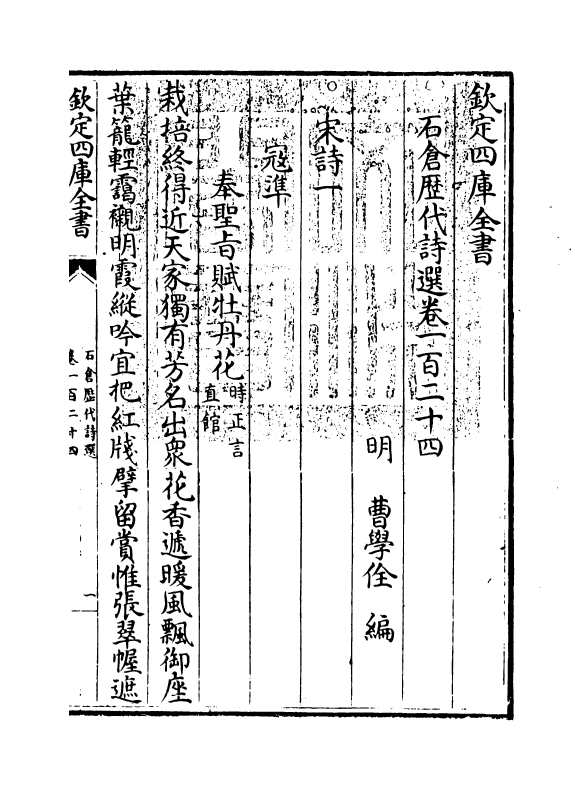 欽定四庫全書
石倉歴代詩選卷一百二十四
明 曹學佺 編
宋詩一
寇準
奉聖旨賦牡丹花時正言直館
栽培終得近天家獨有芳名出衆花香遞暖風飄御座
葉籠輕靄襯明霞縱吟宜把紅牋擘留賞惟張翠幄遮
欽定四庫全書
石倉歴代詩選
卷一百二十四
一